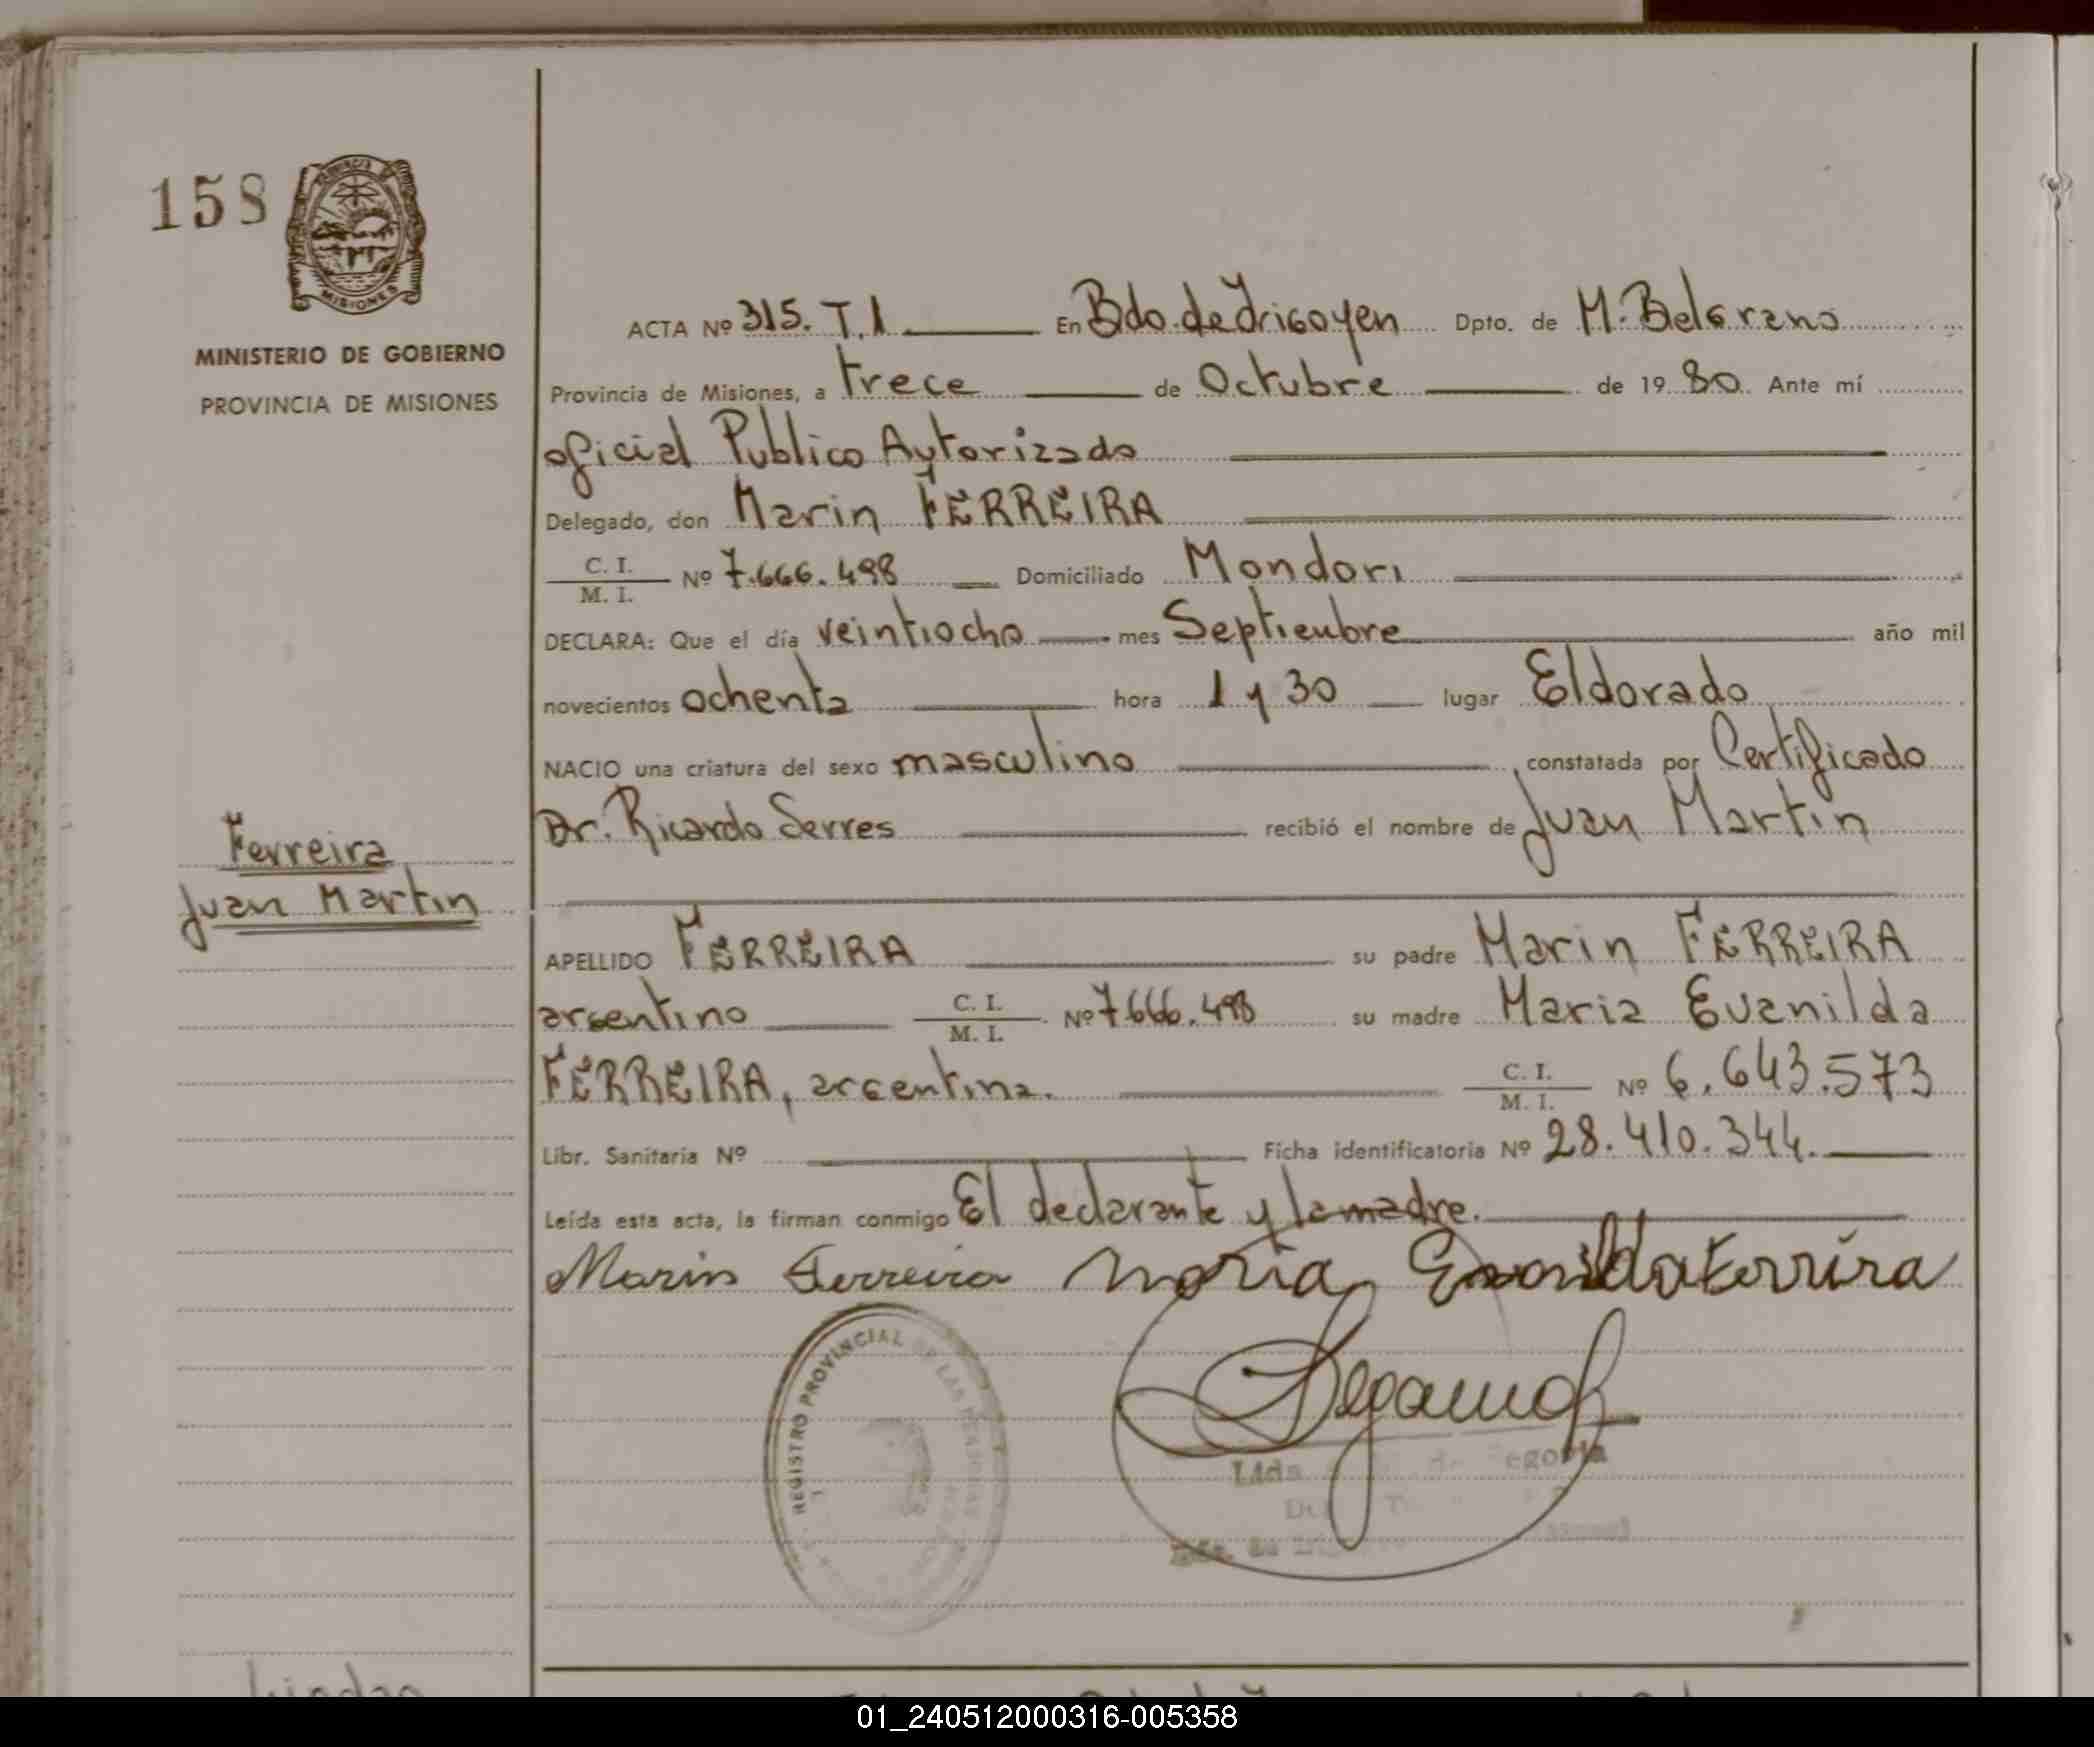 158
PROVINCIA DE
MISIONES
MINISTERIO DE GOBIERNO
PROVINCIA DE MISIONES
Ferreira
Juan Martin
ACTA Nº 315. T.1 En Bdo. de Irigoyen Dpto. de M. Belgrano
Provincia de Misiones, a trece de Octubre de 19 80. Ante mí
oficial Publico Autorizado
Delegado, don Marin FERREIRA
C. I.
M. I. Nº 7.666.498 Domiciliado Mondori
DECLARA: Que el día veintiocho mes Septiembre año mil
novecientos ochenta hora 1 y 30 lugar Eldorado
NACIO una criatura del sexo masculino, constatada por Certificado
Dr. Ricardo Serres recibió el nombre de Juan Martin
APELLIDO FERREIRA su padre Marin FERREIRA
argentino C. I. M. I. Nº 7.666.498 su madre Maria Evanilda
FERREIRA, argentina. C. I. M. I. Nº 6.643.573
Libr. Sanitaria Nº Ficha identificatoria Nº 28.410.344.
Leída esta acta, la firman conmigo El declarante y la madre.
Marin Ferreira Maria Evanilda Ferrira
REGISTRO PROVINCIAL DE LAS PERSONAS
01_240512000316-005358